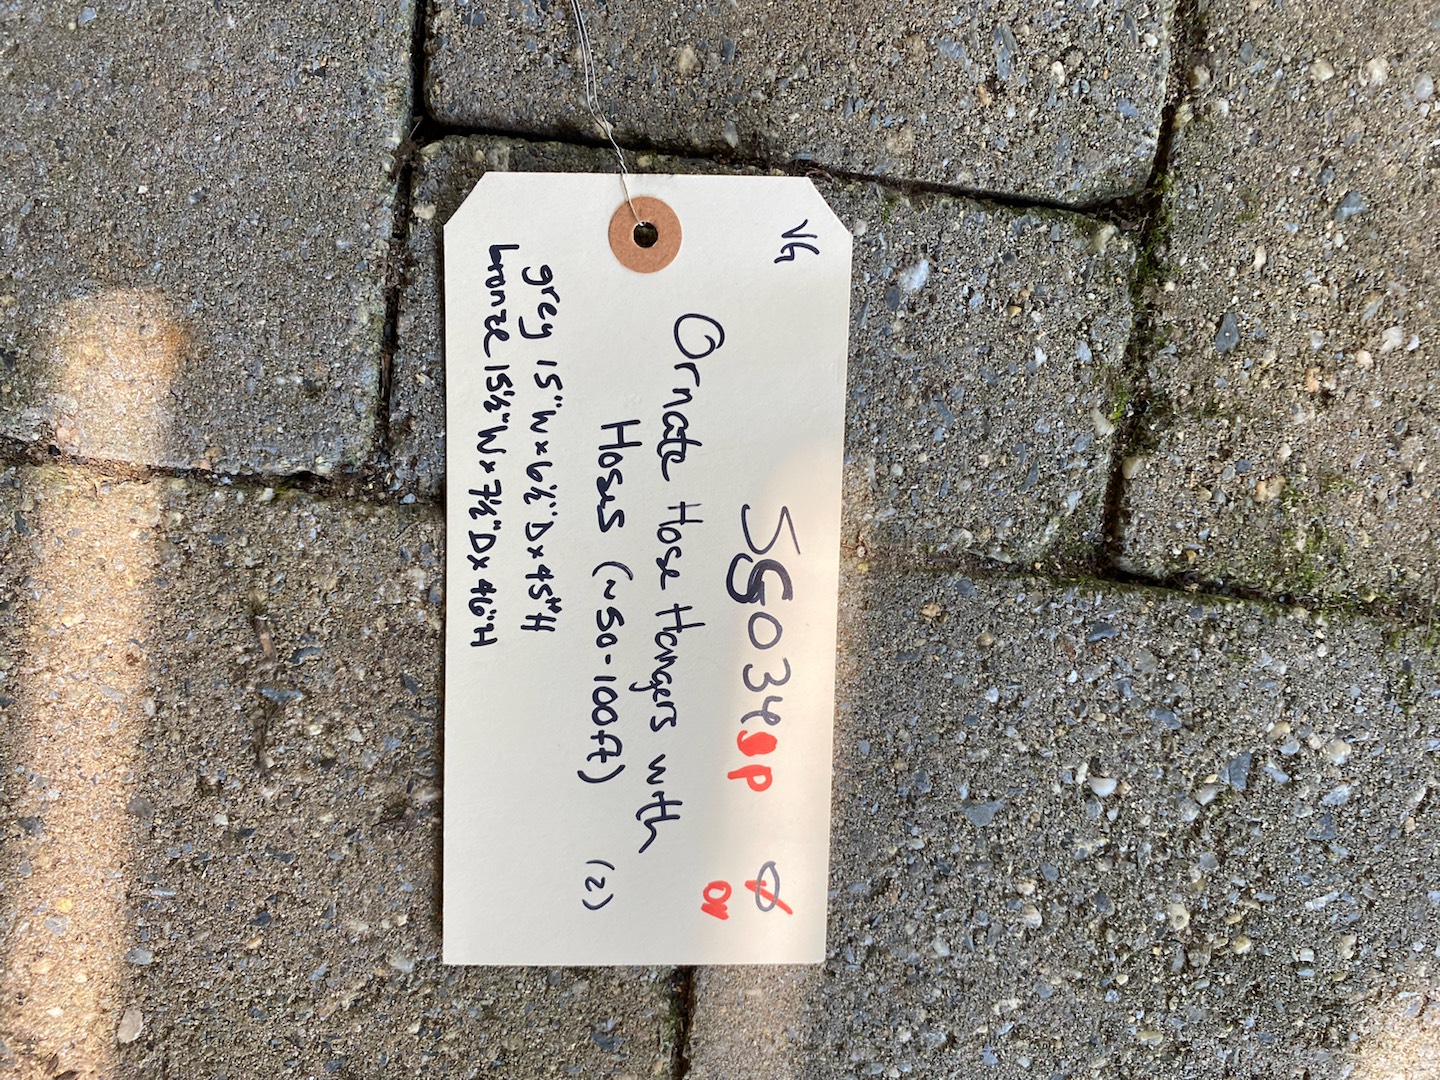 VG
SG034SP
Ornate Hose Hangers with
Hoses (~50-100ft) (2)
grey 15"W x 6½"D x 45"H
bronze 15½"W x 7½"D x 46"H